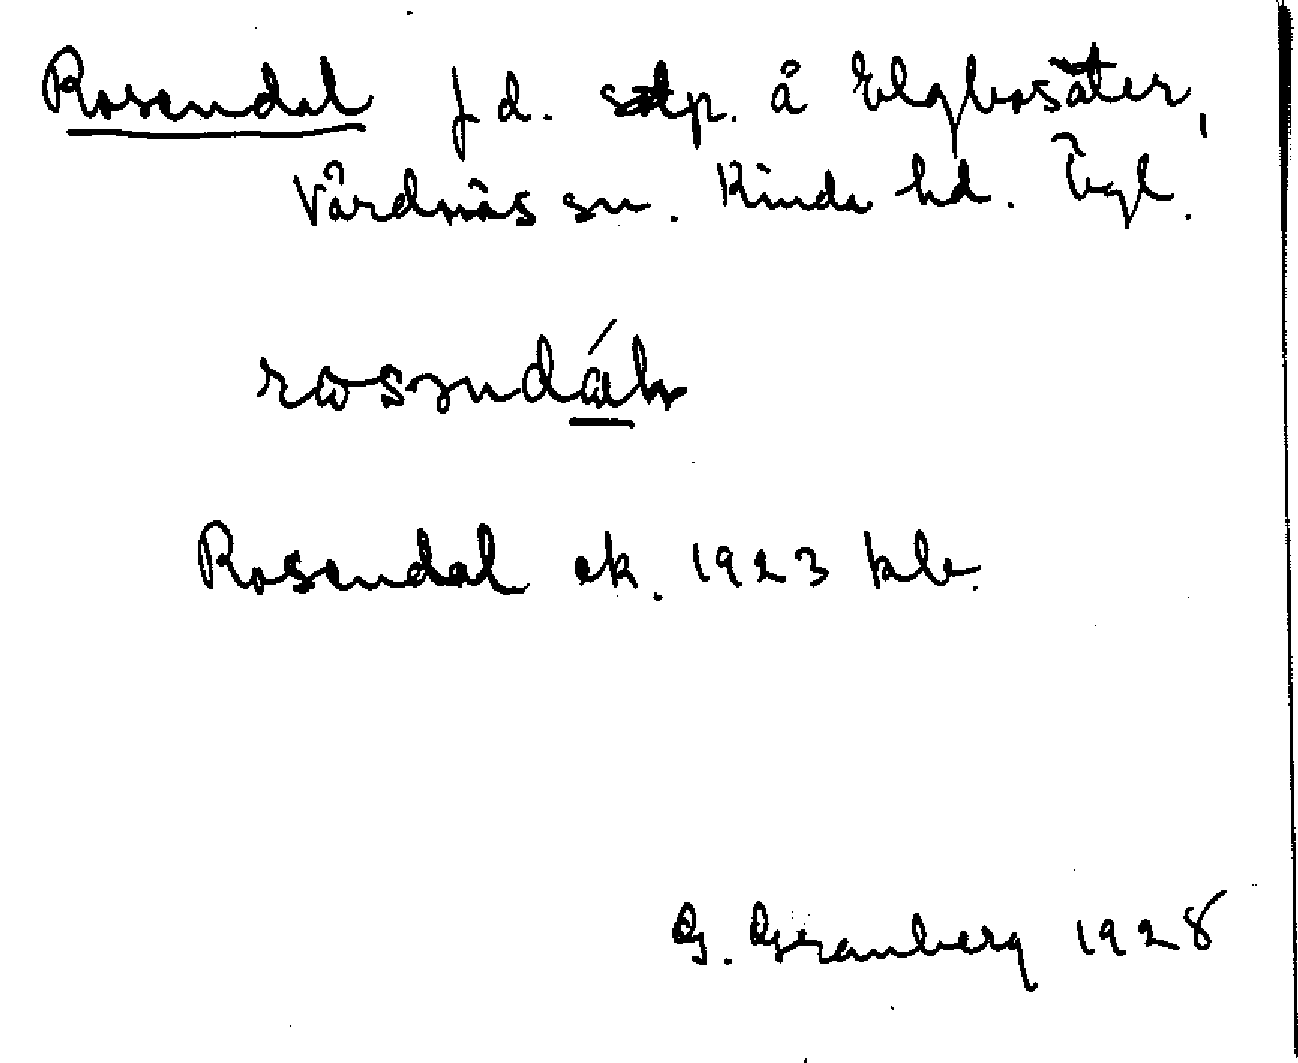 Rosendal f d. stp. å Elgbosäter,
Vårdnäs sn. Kinda hd. Ögl.
Rosendal ek. 1923 klr.
G. Granberg 1928